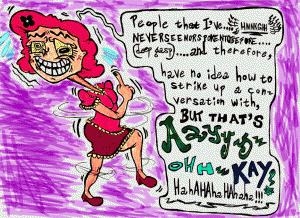 People that I've... HNNKGH!
NEVER SEEN OR SPOKEN TO BEFORE....
(deep gasp) ....and therefore,
have no idea how to
strike up a con-
versation with,
BUT THAT'S
Aayy-
OHH-
KAY!
HahAHAhaHAhaha!!!